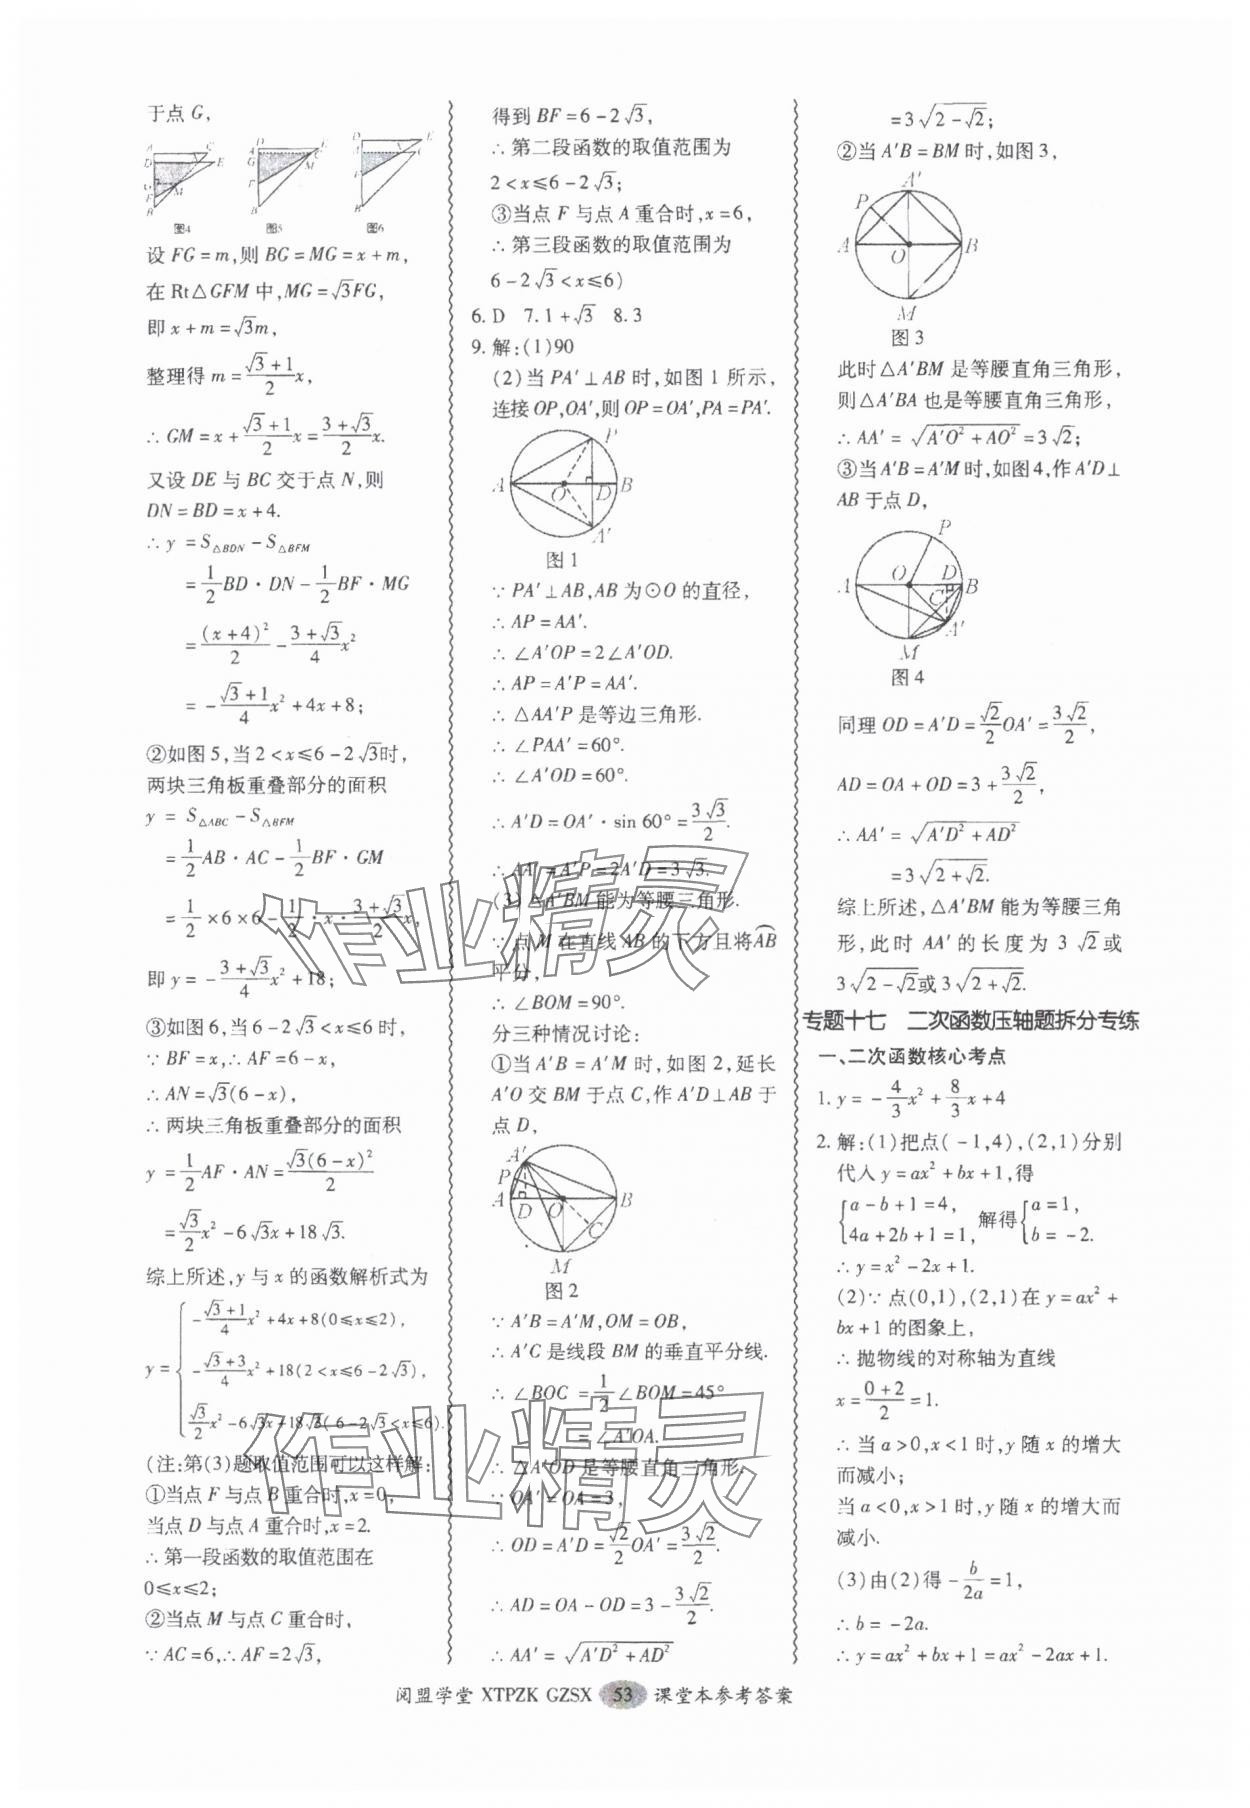 于点 G,
图4 图5 图6
设 FG=m,则 BG=MG=x+m,
在 Rt△GFM 中,MG=√3FG,
即 x+m=√3m,
整理得 m=(√3+1)/2 x,
∴ GM=x+(√3+1)/2 x=(3+√3)/2 x.
又设 DE 与 BC 交于点 N,则
DN=BD=x+4.
∴ y =S△BDN-S△BFM
=1/2 BD·DN-1/2 BF·MG
=(x+4)²/2-(3+√3)/4 x²
=-(√3+1)/4 x²+4x+8;
②如图 5,当 2<x≤6-2√3时,
两块三角板重叠部分的面积
y = S△ABC-S△BFM
=1/2 AB·AC-1/2 BF·GM
=1/2×6×6-1/2·x·(3+√3)/2 x,
即 y=-(3+√3)/4 x²+18;
③如图 6,当 6-2√3<x≤6 时,
∵ BF=x,∴ AF=6-x,
∴ AN=√3(6-x),
∴ 两块三角板重叠部分的面积
y =1/2 AF·AN=√3(6-x)²/2
=√3/2 x²-6√3x+18√3.
综上所述,y 与 x 的函数解析式为
y={-(√3+1)/4 x²+4x+8(0≤x≤2),
-(√3+3)/4 x²+18(2<x≤6-2√3),
√3/2 x²-6√3x+18√3(6-2√3<x≤6).
(注:第(3)题取值范围可以这样解:
①当点 F 与点 B 重合时,x=0,
当点 D 与点 A 重合时,x=2.
∴ 第一段函数的取值范围在
0≤x≤2;
②当点 M 与点 C 重合时,
∵ AC=6,∴ AF=2√3,
得到 BF=6-2√3,
∴ 第二段函数的取值范围为
2<x≤6-2√3;
③当点 F 与点 A 重合时,x=6,
∴ 第三段函数的取值范围为
6-2√3<x≤6)
6. D 7. 1+√3 8. 3
9. 解:(1)90
(2)当 PA'⊥AB 时,如图 1 所示,
连接 OP,OA',则 OP=OA',PA=PA'.
P A O D B A'
图 1
∵ PA'⊥AB,AB 为⊙O 的直径,
∴ AP=AA'.
∴ ∠A'OP=2∠A'OD.
∴ AP=A'P=AA'.
∴ △AA'P 是等边三角形.
∴ ∠PAA'=60°.
∴ ∠A'OD=60°.
∴ A'D=OA'·sin 60°=3√3/2.
∴ AA'=A'P=2A'D=3√3.
(3)△A'BM 能为等腰三角形.
∵ 点 M 在直线 AB 的下方且将⌒AB
平分,
∴ ∠BOM=90°.
分三种情况讨论:
①当 A'B=A'M 时,如图 2,延长
A'O 交 BM 于点 C,作 A'D⊥AB 于
点 D,
A' P A D O B C M
图 2
∵ A'B=A'M,OM=OB,
∴ A'C 是线段 BM 的垂直平分线.
∴ ∠BOC =1/2∠BOM=45°
=∠A'OA.
∴ △A'OD 是等腰直角三角形.
∵ OA'=OA=3,
∴ OD=A'D=√2/2 OA'=3√2/2.
∴ AD=OA-OD=3-3√2/2.
∴ AA'=√(A'D²+AD²)
=3√(2-√2);
②当 A'B=BM 时,如图 3,
A' P A O B M
图 3
此时△A'BM 是等腰直角三角形,
则△A'BA 也是等腰直角三角形,
∴ AA'=√(A'O²+AO²)=3√2;
③当 A'B=A'M 时,如图 4,作 A'D⊥
AB 于点 D,
P A O D B C A' M
图 4
同理 OD=A'D=√2/2 OA'=3√2/2,
AD=OA+OD=3+3√2/2,
∴ AA'=√(A'D²+AD²)
=3√(2+√2).
综上所述,△A'BM 能为等腰三角
形,此时 AA'的长度为 3√2或
3√(2-√2)或3√(2+√2).
专题十七 二次函数压轴题拆分专练
一、二次函数核心考点
1. y=-4/3 x²+8/3 x+4
2. 解:(1)把点(-1,4),(2,1)分别
代入 y=ax²+bx+1,得
{a-b+1=4, 4a+2b+1=1, 解得{a=1, b=-2.
∴ y=x²-2x+1.
(2)∵ 点(0,1),(2,1)在 y=ax²+
bx+1 的图象上,
∴ 抛物线的对称轴为直线
x=(0+2)/2=1.
∴ 当 a>0,x<1 时,y 随 x 的增大
而减小;
当 a<0,x>1 时,y 随 x 的增大而
减小.
(3)由(2)得-b/2a=1,
∴ b=-2a.
∴ y=ax²+bx+1=ax²-2ax+1.
阅盟学堂 XTPZK GZSX 53 课堂本参考答案
作业精灵
作业精灵